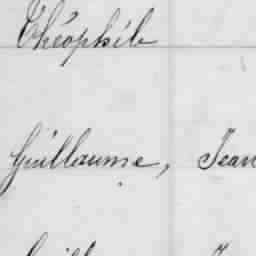 Théophile
Guillaume, Jean